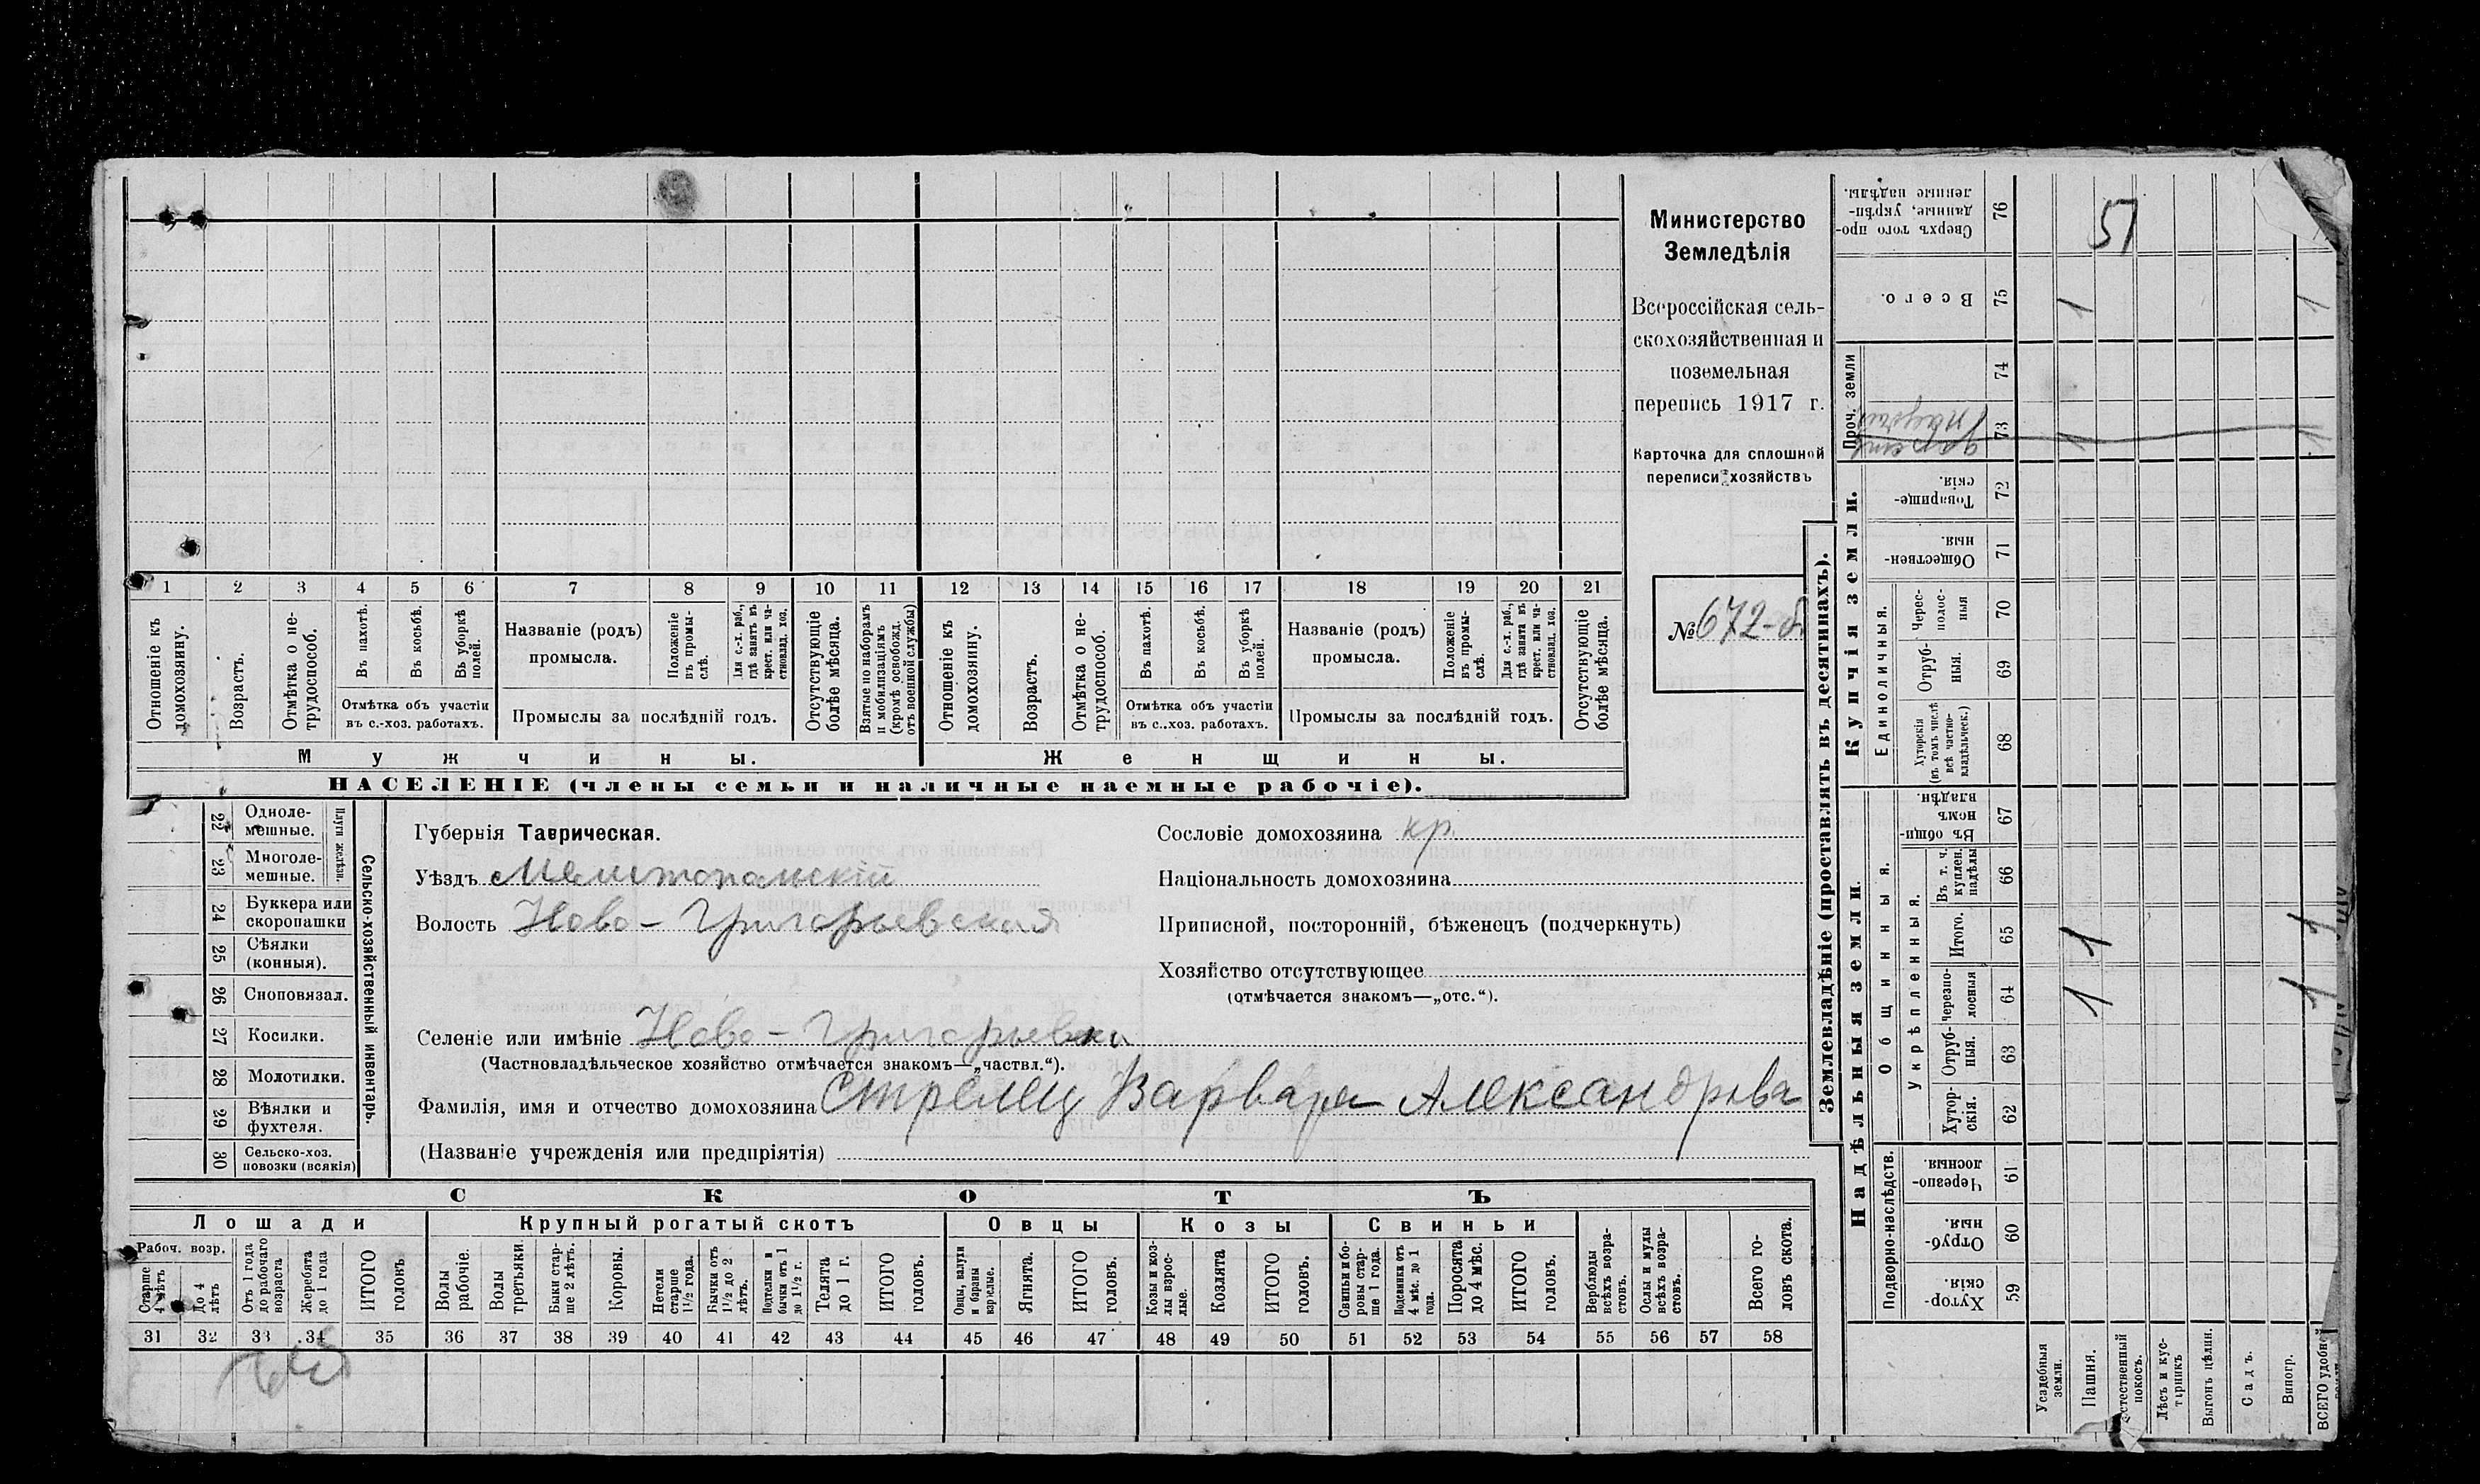 Министерство
Земледѣлія
Всероссійская сель-
скохозяйственная и
поземельная
перепись 1917 г.
Карточка для сплошной
переписи хозяйствъ
№ 672-б
1 2 3 4 5 6 7 8 9 10 11 12 13 14 15 16 17 18 19 20 21
Отношеніе къ домохозяину.
Возрастъ.
Отмѣтка о не-трудоспособ.
Въ пахотѣ.
Въ косьбѣ.
Въ уборкѣ полей.
Отмѣтка объ участіи
въ с.-хоз. работахъ.
Названіе (родъ)
промысла.
Положеніе въ промы-слѣ.
Для с.-х. раб., гдѣ занятъ въ крест. или ча-стновлад. хоз.
Промыслы за послѣдній годъ.
Отсутствующіе болѣе мѣсяца.
Взятые по наборамъ и мобилизаціямъ (кромѣ освобожд. отъ военной службы)
Отношеніе къ домохозяину.
Возрастъ.
Отмѣтка о не-трудоспособ.
Въ пахотѣ.
Въ косьбѣ.
Въ уборкѣ полей.
Отмѣтка объ участіи
въ с.-хоз. работахъ.
Названіе (родъ)
промысла.
Положеніе въ промы-слѣ.
Для с.-х. раб., гдѣ занята въ крест. или ча-стновлад. хоз.
Промыслы за послѣдній годъ.
Отсутствующіе болѣе мѣсяца.
Мужчины.
Женщины.
НАСЕЛЕНІЕ (члены семьи и наличные наемные рабочіе).
Сельско-хозяйственный инвентарь.
Плуги желѣзн.
22 Одноле-мешные.
23 Многоле-мешные.
24 Буккера или скоропашки
25 Сѣялки (конныя).
26 Сноповязал.
27 Косилки.
28 Молотилки.
29 Вѣялки и фухтеля.
30 Сельско-хоз. повозки (всякія)
Губернія Таврическая.
Уѣздъ Мелитопольскій
Волость Ново-Григорьевская
Селеніе или имѣніе Ново-Григорьевка
(Частновладѣльческое хозяйство отмѣчается знакомъ—„частвл.“).
Фамилія, имя и отчество домохозяина Стрелец Варвара Александрова
(Названіе учрежденія или предпріятія)
Сословіе домохозяина кр.
Національность домохозяина
Приписной, посторонній, бѣженецъ (подчеркнуть)
Хозяйство отсутствующее
(отмѣчается знакомъ—„отс.“).
СКОТЪ
Лошади
Крупный рогатый скотъ
Овцы
Козы
Свиньи
Рабоч. возр.
Старше 4 лѣтъ
До 4 лѣтъ
Отъ 1 года до рабочаго возраста
Жеребята до 1 года
ИТОГО головъ
Волы рабочіе.
Волы третьяки.
Быки стар-ше 2 лѣтъ.
Коровы.
Нетели старше 1½ года.
Бычки отъ 1½ до 2 лѣтъ.
Подтелки и бычки отъ 1 до 1½ г.
Телята до 1 г.
ИТОГО головъ.
Овцы, валухи и бараны взрослые.
Ягнята.
ИТОГО головъ.
Козы и коз-лы взрос-лые.
Козлята
ИТОГО головъ.
Свиньи и бо-ровы стар-ше 1 года.
Подсвинки отъ 4 мѣс. до 1 года.
Поросята до 4 мѣс.
ИТОГО головъ.
Верблюды всѣхъ возра-стовъ.
Ослы и мулы всѣхъ возра-стовъ.
Всего го-ловъ скота.
31 32 33 34 35 36 37 38 39 40 41 42 43 44 45 46 47 48 49 50 51 52 53 54 55 56 57 58
Землевладѣніе (проставлять въ десятинахъ).
Надѣльныя земли.
Купчія земли.
Проч. земли
Подворно-наслѣдств.
Общинныя.
Укрѣпленныя.
Единоличныя.
76 Сверхъ того про-данные, укрѣп-ленные надѣлы. 51
75 Всего. 1 1
74
73
72 Товарище-скія.
71 Обществен-ныя
70 Черес-полос-ныя
69 Отруб-ныя.
68 Хуторскія (въ томъ числѣ всѣ частно-владѣльческ.)
67 Въ общи-номъ владѣн.
66 Въ т. ч. куплен. надѣлы
65 Итого. 1 1
64 Черезпо-лосныя 1 1
63 Отруб-ныя.
62 Хутор-скія.
61 Черезпо-лосныя
60 Отруб-ныя
59 Хутор-скія.
Усадебныя земли.
Пашня.
Естественный покосъ.
Лѣсъ и кус-тарникъ
Выгонъ цѣлин.
Садъ.
Виногр.
ВСЕГО удобной